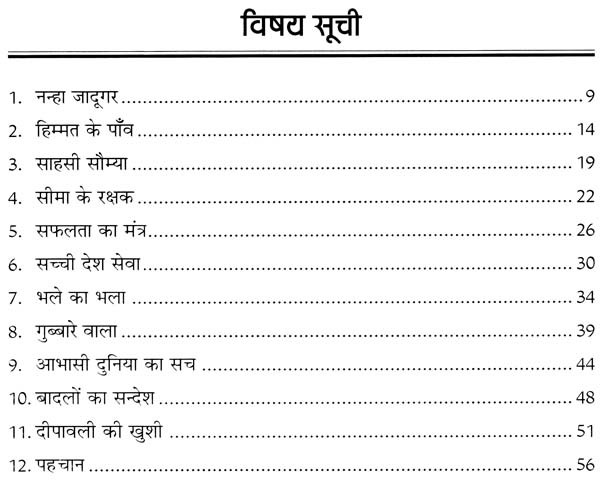 विषय सूची
1. नन्हा जादूगर 9
2. हिम्मत के पाँव 14
3. साहसी सौम्या 19
4. सीमा के रक्षक 22
5. सफलता का मंत्र 26
6. सच्ची देश सेवा 30
7. भले का भला 34
8. गुब्बारे वाला 39
9. आभासी दुनिया का सच 44
10. बादलों का सन्देश 48
11. दीपावली की खुशी 51
12. पहचान 56